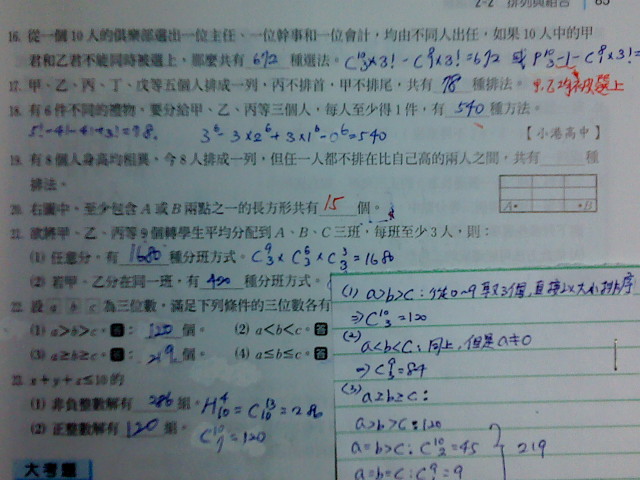 2-2 排列與組合 65
16. 從一個 10 人的俱樂部選出一位主任、一位幹事和一位會計，均由不同人出任，如果 10 人中的甲
君和乙君不能同時被選上，那麼共有 672 種選法。C¹⁰₃×3! - C⁸₁×3! = 672 或 P¹⁰₃ -1- C⁸₁×3! =
17. 甲、乙、丙、丁、戊等五個人排成一列，丙不排首，甲不排尾，共有 78 種排法。甲.乙均被選上
18. 有 6 件不同的禮物，要分給甲、乙、丙等三個人，每人至少得 1 件，有 540 種方法。
5!-4!-4!+3!=78. 3⁶-3×2⁶+3×1⁶-0⁶=540 【小港高中】
19. 有 8 個人身高均相異，今 8 人排成一列，但任一人都不排在比自己高的兩人之間，共有 種
排法。
20. 右圖中，至少包含 A 或 B 兩點之一的長方形共有 15 個。
A B
21. 欲將甲、乙、丙等 9 個轉學生平均分配到 A、B、C 三班，每班至少 3 人，則：
(1) 任意分，有 1680 種分班方式。C⁹₃×C⁶₃×C³₃=1680
(2) 若甲、乙分在同一班，有 420 種分班方式。
22. 設 a b c 為三位數，滿足下列條件的三位數各有
(1) a>b>c。答：120 個。 (2) a<b<c。答
(3) a≥b≥c。答：219 個。 (4) a≤b≤c。答
23. x+y+z≤10 的
(1) 非負整數解有 286 組。H⁴₁₀=C¹³₁₀=286
(2) 正整數解有 120 組。C¹⁰₇=120
大考題
(1) a>b>c：從0~9取3個,直接依大小排序
⇒C¹⁰₃=120
(2)
a<b<c：同上,但是a≠0
⇒C⁹₃=84
(3)
a≥b≥c：
a>b>c：120
a=b>c：C¹⁰₂=45 219
a=b=c：C⁹₁=9